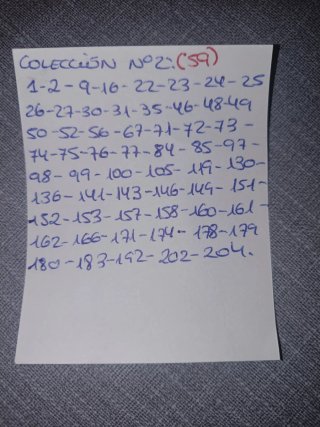 COLECCIÓN Nº2: (59)
1-2-9-16-22-23-24-25
26-27-30-31-35-46-48-49
50-52-56-67-71-72-73-
74-75-76-77-84-85-97-
98-99-100-105-119-130-
136-141-143-146-149-151-
152-153-157-158-160-161-
162-166-171-174-178-179
180-183-192-202-204.